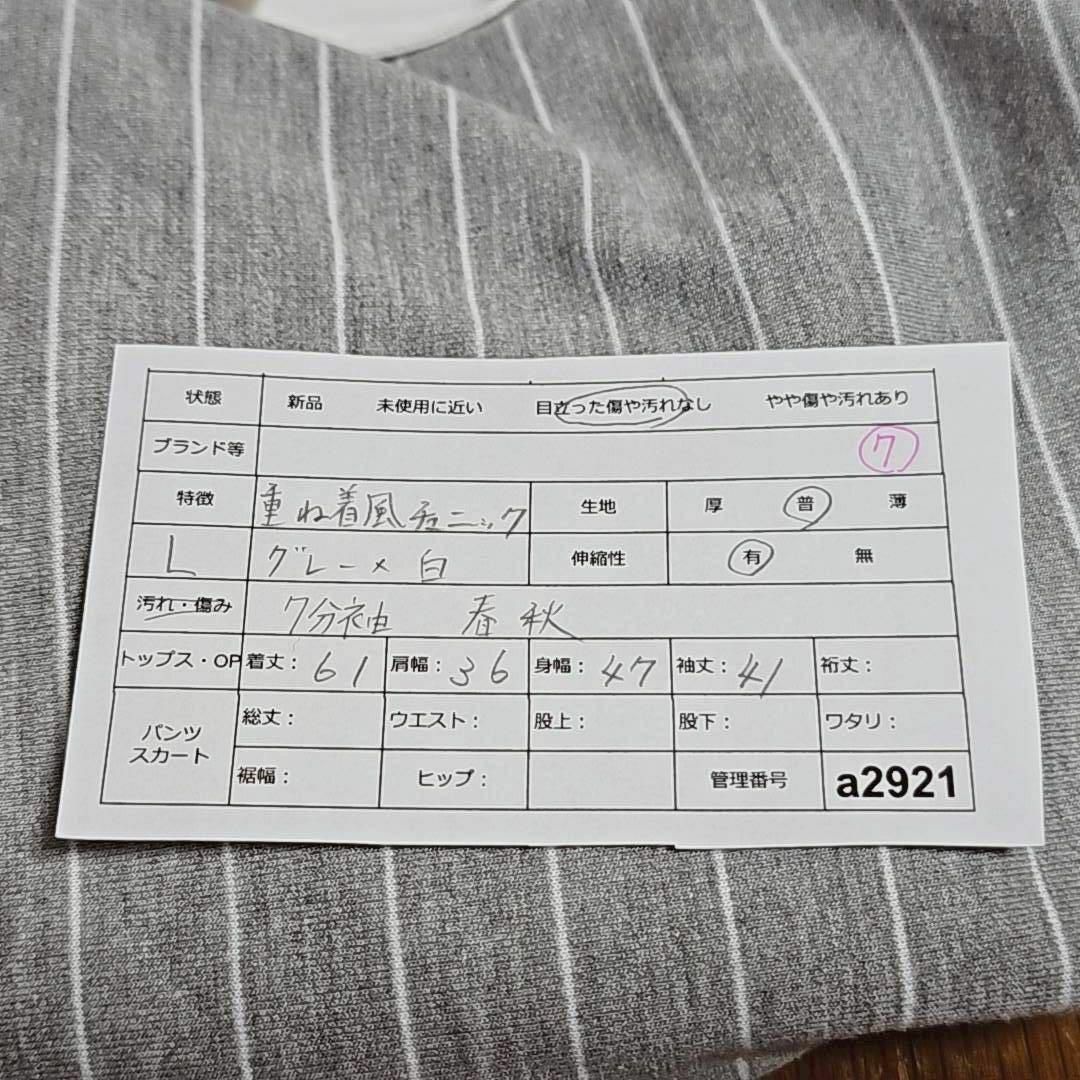 状態 新品 未使用に近い 目立った傷や汚れなし やや傷や汚れあり
ブランド等 7
特徴 重ね着風チュニック 生地 厚 普 薄
L グレー×白 伸縮性 有 無
汚れ・傷み 7分袖 春秋
トップス・OP 着丈：61 肩幅：36 身幅：47 袖丈：41 裄丈：
パンツ スカート 総丈： ウエスト： 股上： 股下： ワタリ：
裾幅： ヒップ： 管理番号 a2921